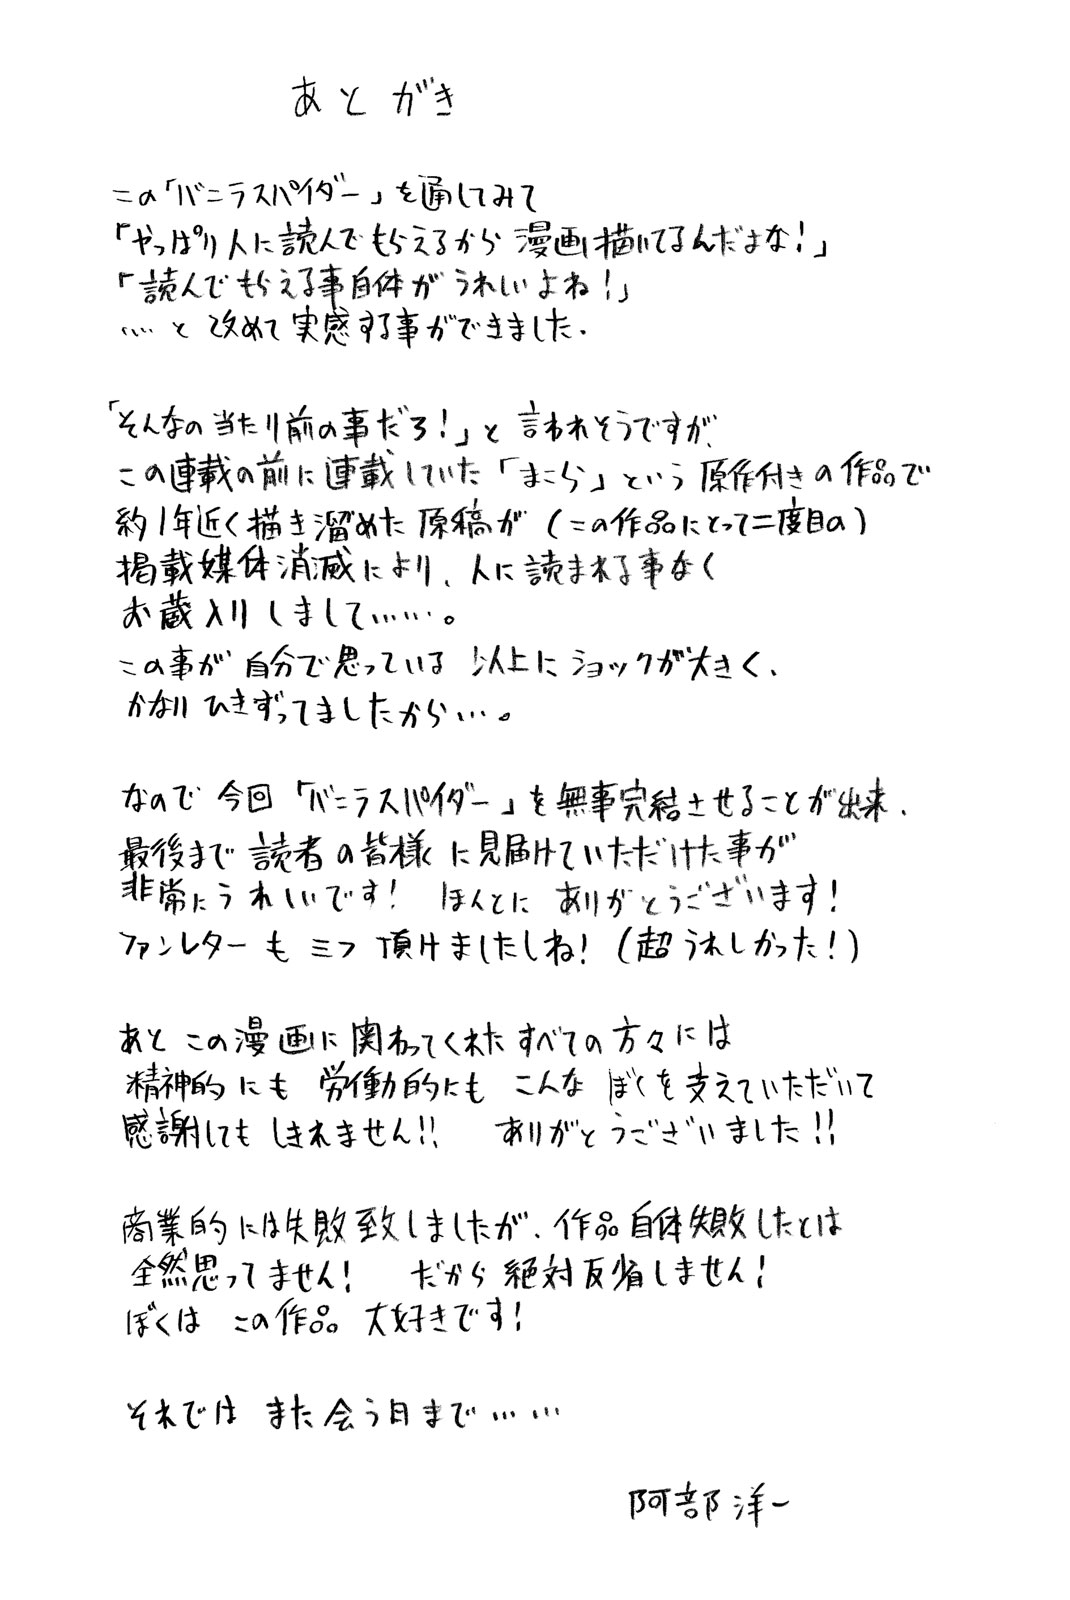 あとがき
この「バニラスパイダー」を通してみて
「やっぱり人に読んでもらえるから漫画描いてるんだよな!」
「読んでもらえる事自体がうれしいよね!」
……と改めて実感する事ができました.
「そんなの当たり前の事だろ!」と言われそうですが、
この連載の前に連載していた「まこら」という原作付きの作品で
約1年近く描き溜めた原稿が(この作品にとって二度目の)
掲載媒体消滅により、人に読まれる事なく
お蔵入りしまして……。
この事が自分で思っている以上にショックが大きく、
かなりひきずってましたから…。
なので今回「バニラスパイダー」を無事完結させることが出来、
最後まで読者の皆様に見届けていただけた事が
非常にうれしいです! ほんとにありがとうございます!
ファンレターも三つ頂けましたしね!(超うれしかった!)
あとこの漫画に関わってくれたすべての方々には
精神的にも労働的にもこんなぼくを支えていただいて
感謝してもしきれません!! ありがとうございました!!
商業的には失敗致しましたが、作品自体失敗したとは
全然思ってません! だから絶対反省しません!
ぼくはこの作品大好きです!
それではまた会う日まで……
阿部洋一